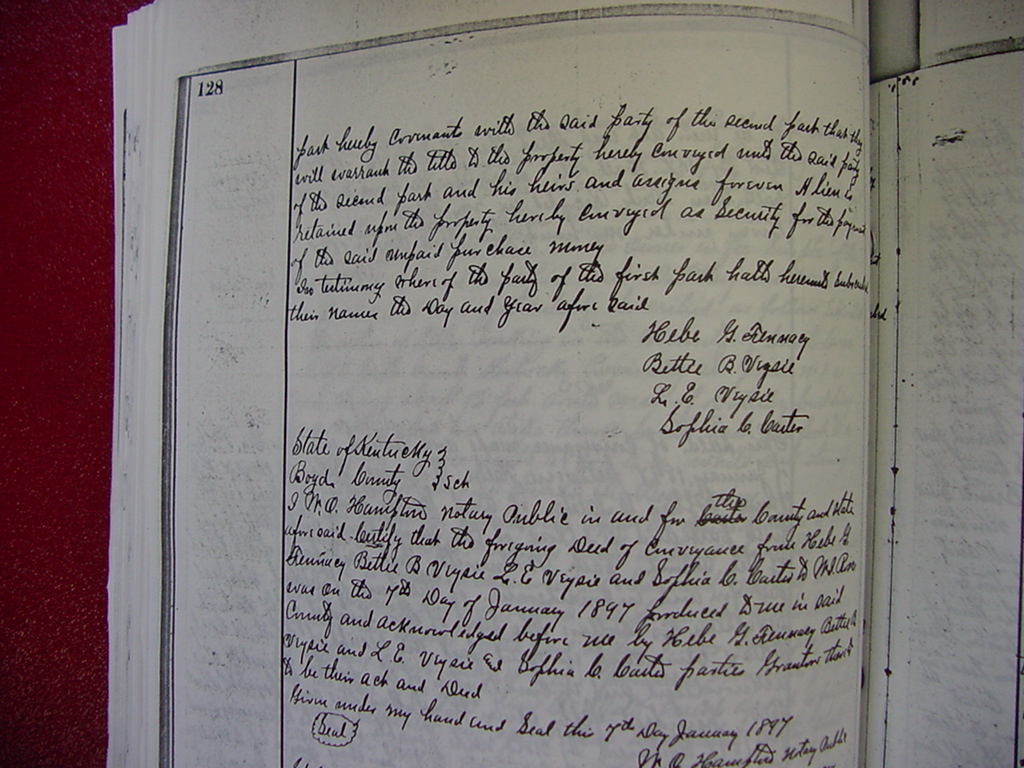 128
part hereby Covenants with the said Party of the second part that they
will warrant the title to the property hereby Conveyed unto the said party
of the second part and his heirs and assigns forever A lien is
retained upon the property hereby Conveyed as Security for the
of the said unpaid purchase money
In testimony Where of the party of the first part hath hereunto
their names the Day and Year afore said
Hebe G. Tennacy
Bettie B. Veysie
L. E. Veysie
Sophia C. Carter
State of Kentucky }
Boyd County } Sct
I W.O. Hampton notary Public in and for the County and State
afore said Certify that the foregoing Deed of Conveyance from Hebe G
Tennacy Bettie B Veysie L. E Veysie and Sophia C. Carter to
was on the 7th Day of January 1897 produced to me in said
County and acknowledged before me by Hebe G. Tennacy Bettie B
Veysie and L. E. Veysie and Sophia C. Carter parties Grantors
to be their act and Deed
Given under my hand and Seal this 7th Day January 1897
(Seal)
W. O Hampton notary Public